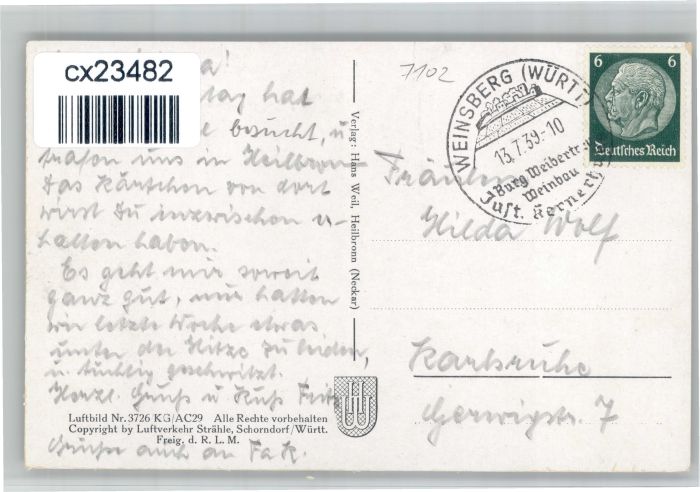 cx23482
7102
besucht, u
trafen uns in Heilbronn
Das Kärtchen von dort
wirst Du inzwischen er-
halten haben.
Es geht mir soweit
ganz gut, nur hatten
wir letzte Woche etwas
unter der Hitze zu leiden,
u. tüchtig geschwitzt.
Herzl. Gruß u. Kuß Fritz
Luftbild Nr. 3726 KG/AC29 Alle Rechte vorbehalten
Copyright by Luftverkehr Strähle, Schorndorf/Württ.
Freig. d. R. L. M.
Grüße auch an
Verlag: Hans Weil, Heilbronn (Neckar)
WEINSBERG (WÜRTT)
13.7.39.-10
Burg Weibertreu
Weinbau
Just. Kerner
6 6
Deutsches Reich
Fräulein
Hilda Wolf
Karlsruhe
Gerwigstr. 7